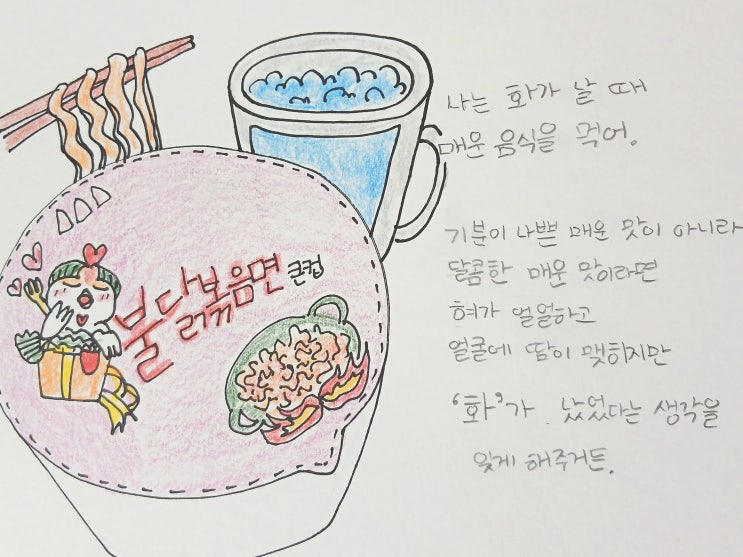 나는 화가 날 때
매운 음식을 먹어.
기분이 나쁜 매운 맛이 아니라
달콤한 매운 맛이라면
혀가 얼얼하고
얼굴에 땀이 맺히지만
‘화’가 났었다는 생각을
잊게 해주거든.
불닭볶음면 큰컵